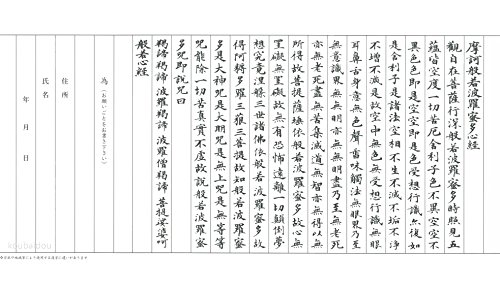 摩訶般若波羅蜜多心経
観自在菩薩行深般若波羅蜜多時照見五
蘊皆空度一切苦厄舎利子色不異空空不
異色色即是空空即是色受想行識亦復如
是舎利子是諸法空相不生不滅不垢不浄
不増不減是故空中無色無受想行識無眼
耳鼻舌身意無色聲香味觸法無眼界乃至
無意識界無無明亦無無明盡乃至無老死
亦無老死盡無苦集滅道無智亦無得以無
所得故菩提薩埵依般若波羅蜜多故心無
罣礙無罣礙故無有恐怖遠離一切顛倒夢
想究竟涅槃三世諸佛依般若波羅蜜多故
得阿耨多羅三藐三菩提故知般若波羅蜜
多是大神咒是大明咒是無上咒是無等等
咒能除一切苦真實不虚故説般若波羅蜜
多咒即説咒曰
羯諦羯諦 波羅羯諦 波羅僧羯諦 菩提娑婆呵
般若心経
為（お願いごとをお書き下さい）
住所
氏名
年 月 日